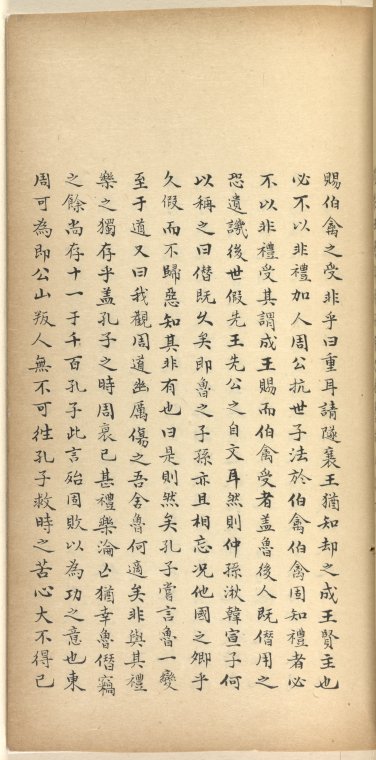 賜伯禽之受非乎曰重耳請隧襄王猶知却之成王賢主也
必不以非禮加人周公抗世子法於伯禽伯禽固知禮者必
不以非禮受其謂成王賜而伯禽受者蓋魯後人既僭用之
恐遺譏後世假先王先公之自文耳然則仲孫湫韓宣子何
以稱之曰僭既久矣即魯之子孫亦且相忘况他國之卿乎
久假而不歸惡知其非有也曰是則然矣孔子嘗言魯一變
至于道又曰我觀周道幽厲傷之吾舍魯何適矣非與其禮
樂之獨存乎盖孔子之時周衰已甚禮樂淪亡猶幸魯僭竊
之餘尚存十一于千百孔子此言殆因敗以為功之意也東
周可為即公山叛人無不可徃孔子救時之苦心大不得已